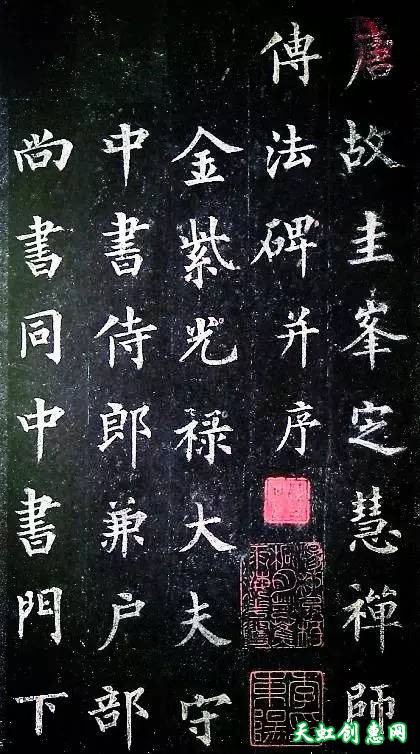 唐故圭峯定慧禪師
傳法碑并序
金紫光禄大夫守
中書侍郎兼户部
尚書同中書門下
天虹创惠网